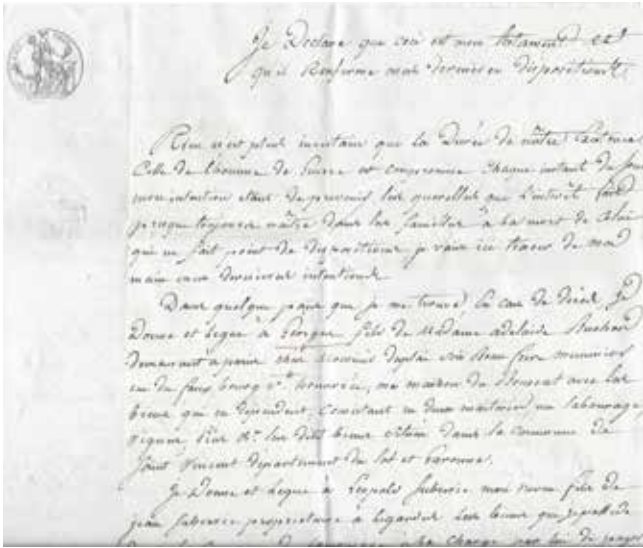 Je Declare que ceci est mon testament et
qu'il Renferme mes dernieres dispositions
Rien n'est plus incertain que la Durée de nôtre Existence
Celle de l'homme de Guerre est compromise Chaque instant de
mon intention étant de prevenir les querelles que l'interêt fait
presque toujours naître dans les familles à la mort de Celui
qui ne fait point de dispositions, je vais ici tracer de ma
main mes dernieres intentions
Dans quelque païs que je me trouve, en cas de décès Je
Donne et Legue à Georges fils de Madame adelaide
demeurant à paris chez
rue du faux bourg st honnorée, ma maison du avec les
biens que en dependent, consistant en deux metairies en labourage
vignes Prés &c. les dits biens situés dans la commune de
Saint Vincent département du lot et Garonne.
Je Donne et Legue à Léopold mon neveu fils de
jean proprietaire à les biens que je possede